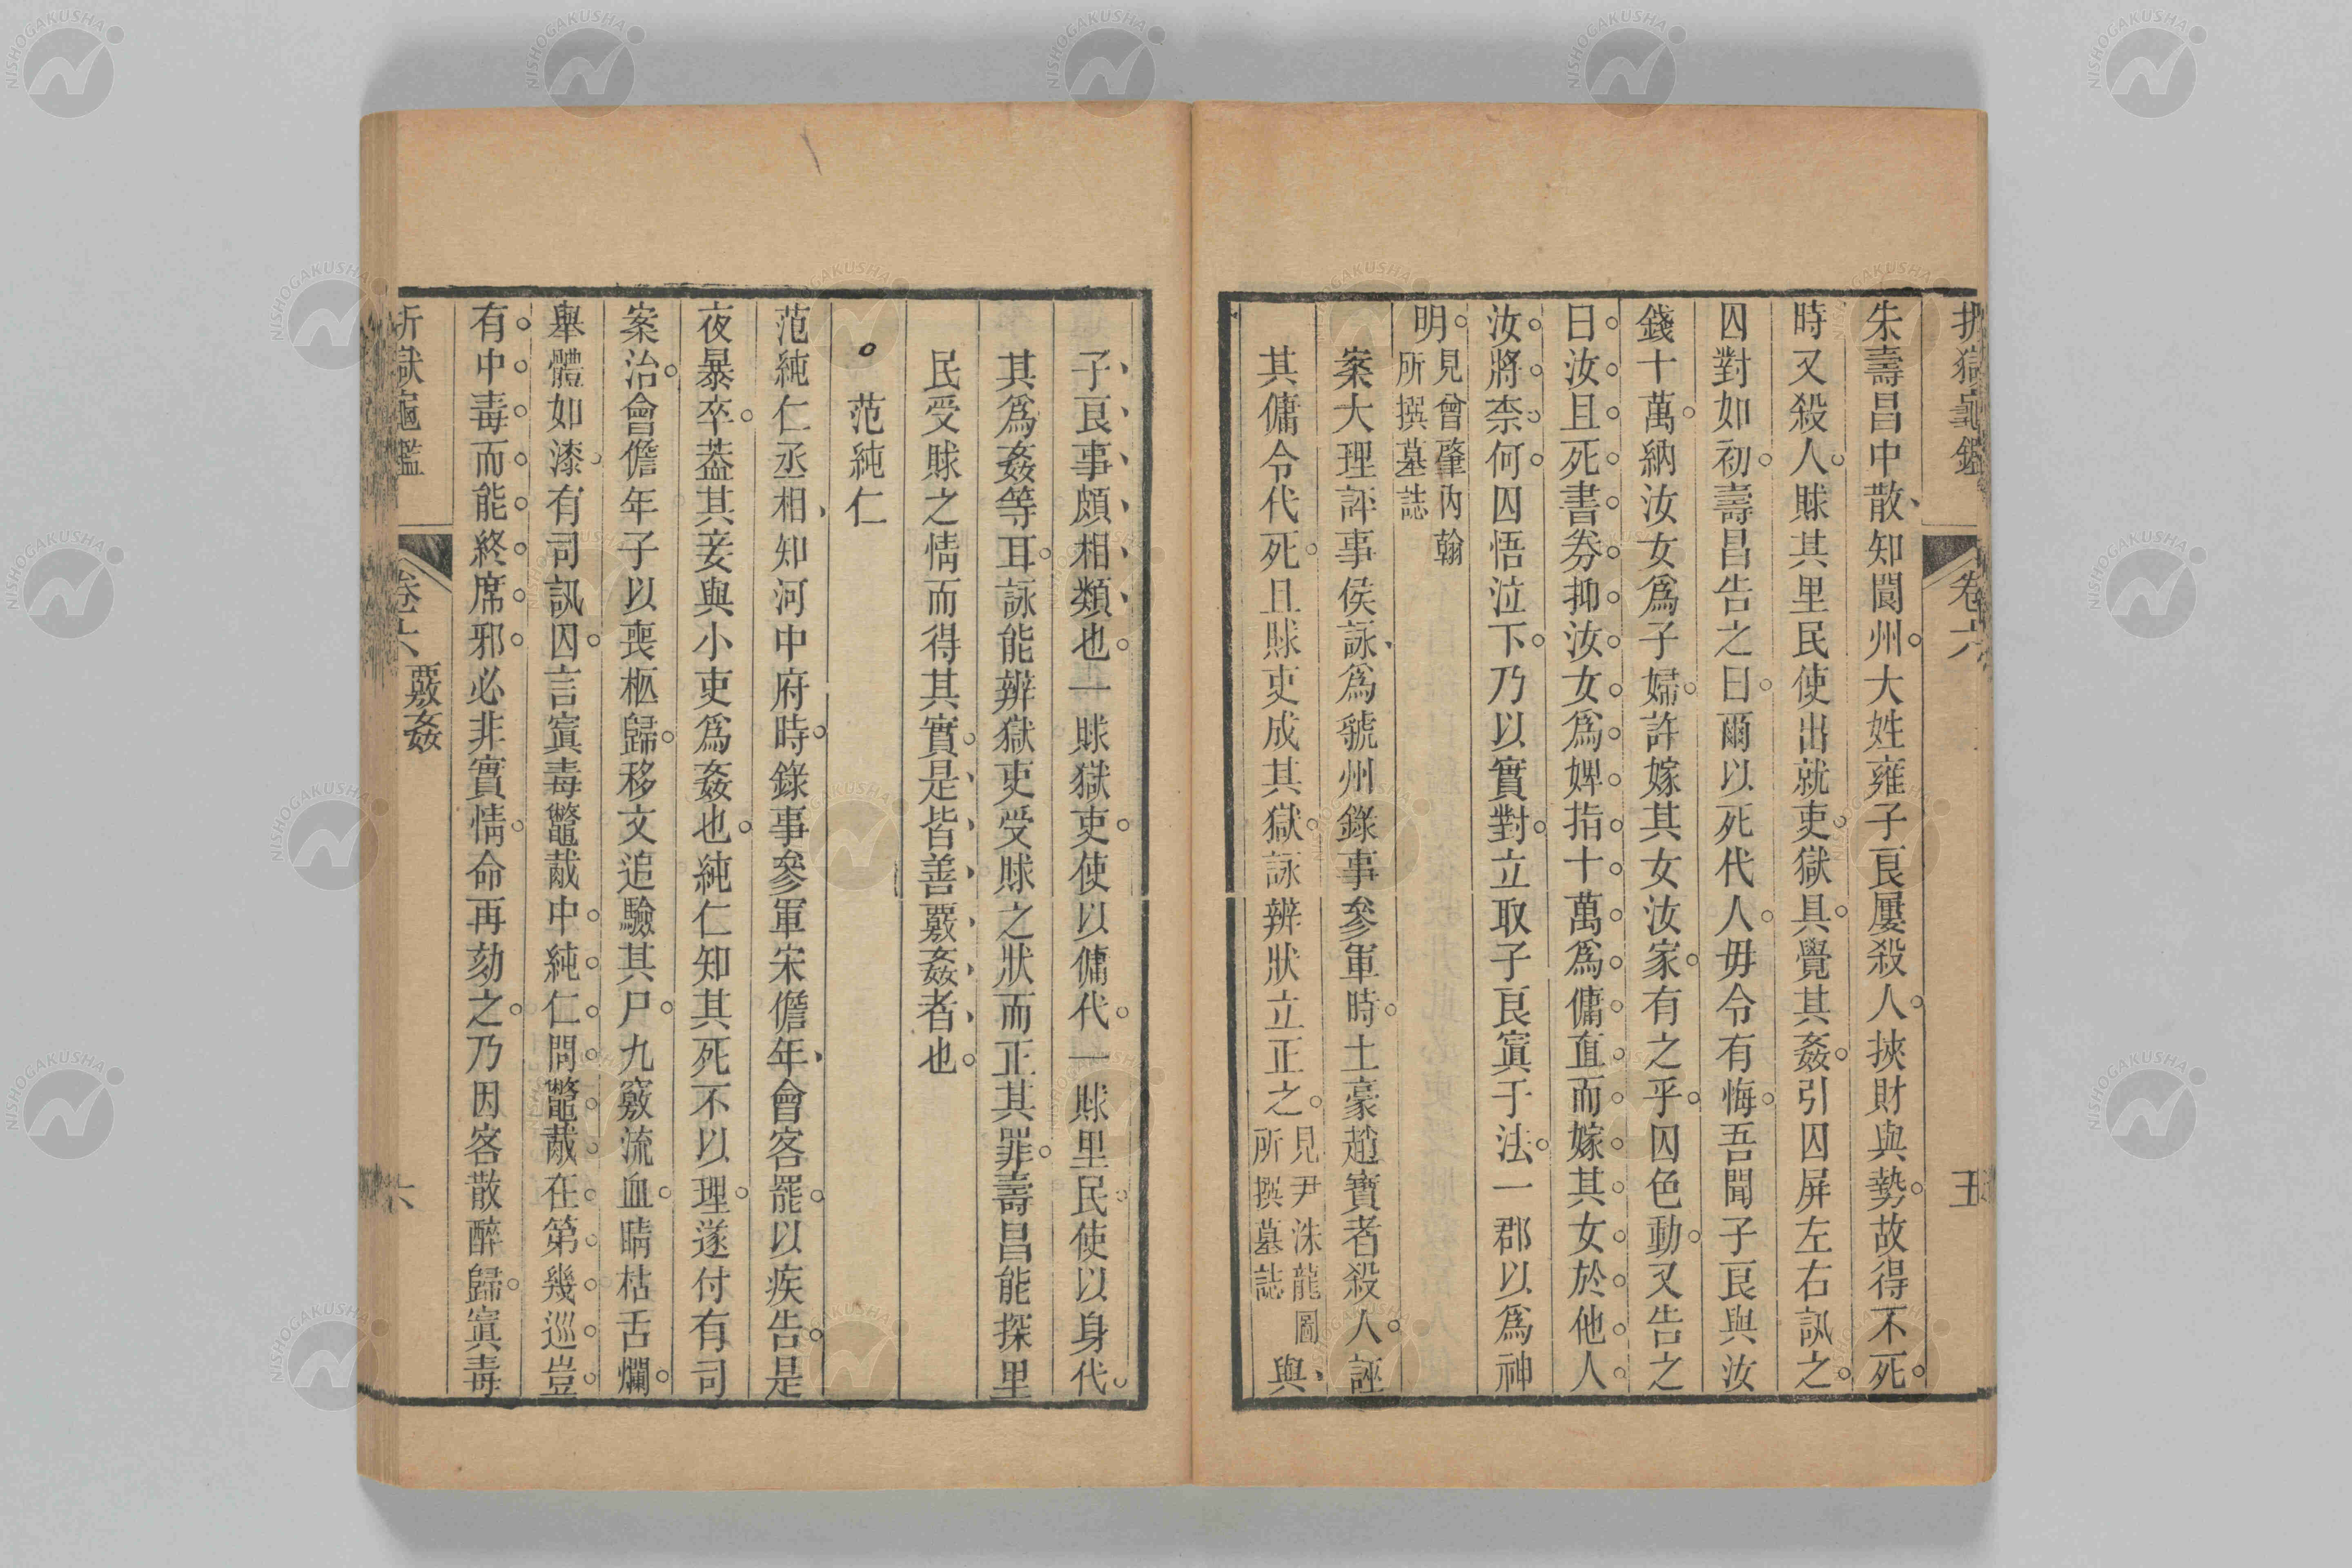 折獄龜鑑 卷六 五
朱壽昌中散、知閬州。大姓雍子良屢殺人。挾財與勢。故得不死。
時又殺人。賕其里民使出就吏。獄具。覺其姦。引囚屏左右訊之。
囚對如初。壽昌告之曰。爾以死代人。毋令有悔。吾聞子良與汝
錢十萬。納汝女爲子婦。許嫁其女汝家。有之乎。囚色動。又告之
曰。汝且死。書劵抑汝女爲婢。指十萬爲傭直。而嫁其女於他人。
汝將柰何。囚悟泣下。乃以實對。立取子良寘于法。一郡以爲神
明。見曾肇內翰所撰墓誌
案大理評事侯詠、爲虢州錄事參軍時。土豪趙寶者殺人。誣
其傭令代死。且賕吏成其獄。詠辨狀立正之。見尹洙龍圖所撰墓誌、與
子良事頗相類也。一賕獄吏。使以傭代。一賕里民。使以身代。
其爲姦等耳。詠能辨獄吏受賕之狀而正其罪。壽昌能探里
民受賕之情而得其實。是皆善覈姦者也。
○ 范純仁
范純仁丞相、知河中府時。錄事參軍宋儋年、會客罷。以疾告。是
夜暴卒。蓋其妾與小吏爲姦也。純仁知其死不以理。遂付有司
案治。會儋年子以喪柩歸。移文追驗其尸。九竅流血。睛枯舌爛。
舉體如漆。有司訊囚。言寘毒鼈胾中。純仁。問鼈胾。在第幾巡。豈
有中毒而能終席邪。必非實情。命再劾之。乃因客散醉歸。寘毒
折獄龜鑑 卷六 覈姦 六